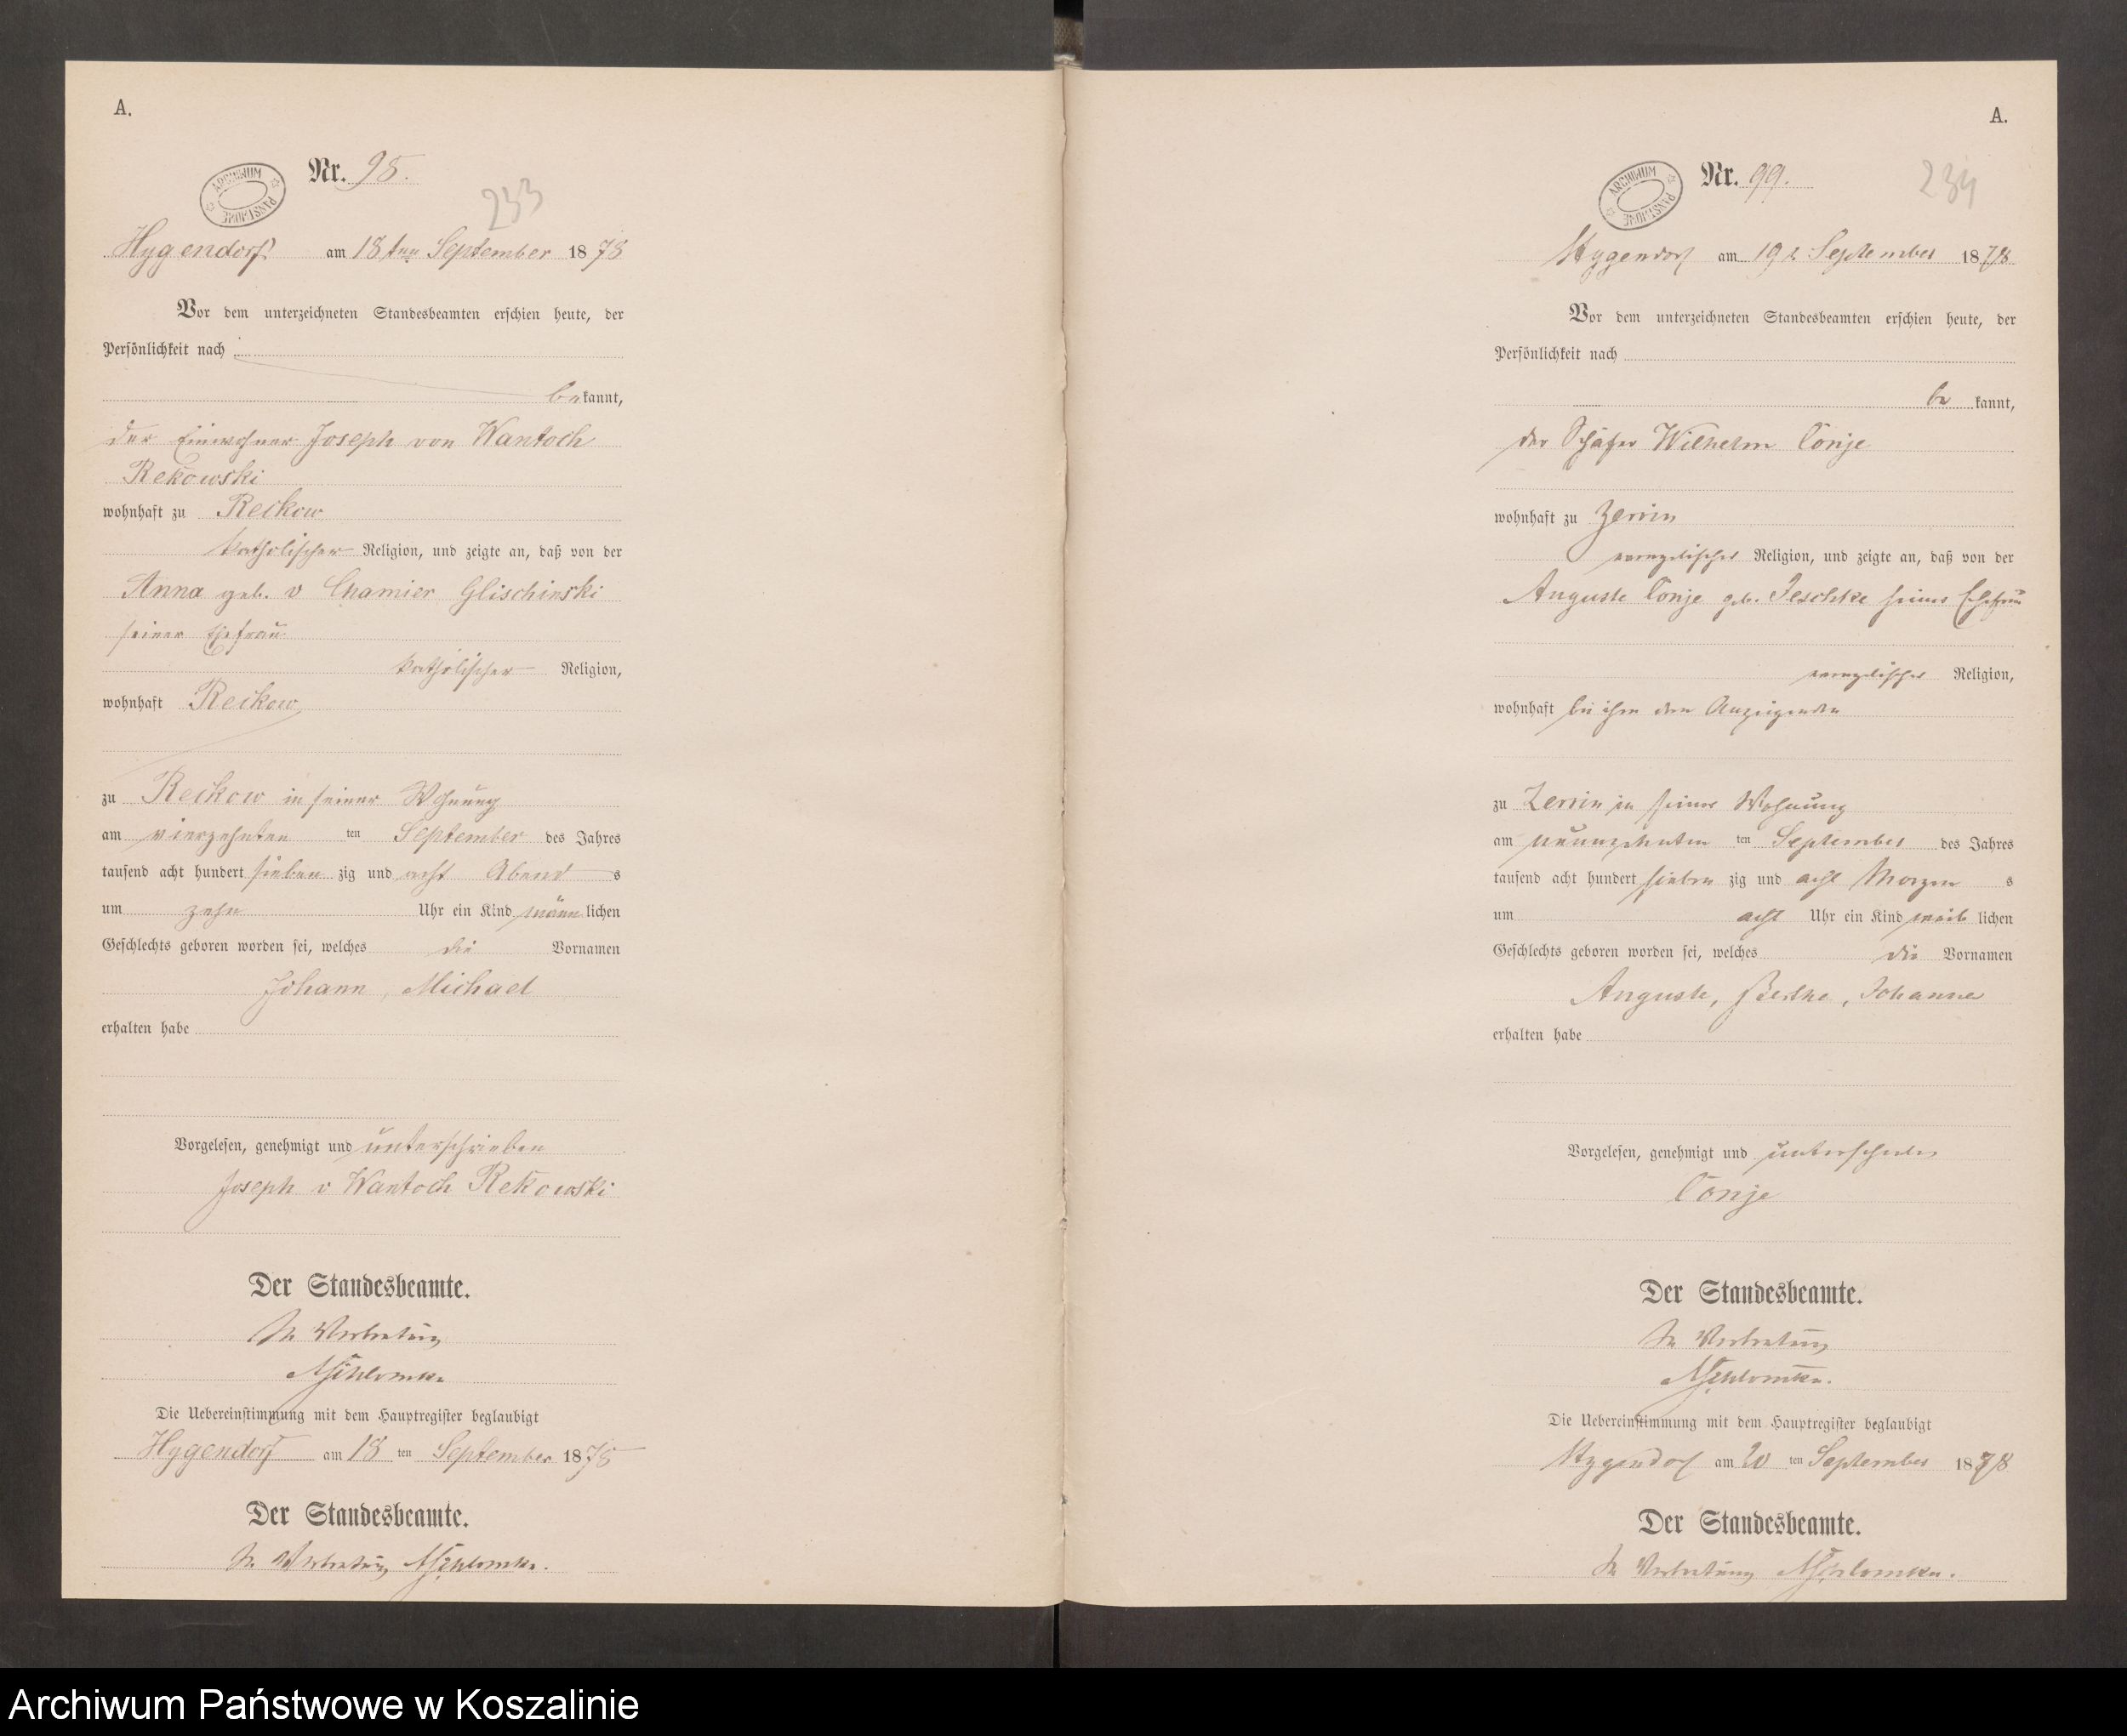 A.
Nr. 98.
ARCHIWUM PAŃSTWOWE
233
Hygendorf am 18ten September 1878
Vor dem unterzeichneten Standesbeamten erschien heute, der
Persönlichkeit nach
bekannt,
der Einwohner Joseph von Wantoch
Rekowski
wohnhaft zu Reckow
katholischer Religion, und zeigte an, daß von der
Anna geb. v Chamier Glischinski
seiner Ehefrau
katholischer Religion,
wohnhaft Reckow
zu Reckow in seiner Wohnung
am vierzehnten ten September des Jahres
tausend acht hundert sieben zig und acht Abend s
um zehn Uhr ein Kind männlichen
Geschlechts geboren worden sei, welches die Vornamen
Johann, Michael
erhalten habe
Vorgelesen, genehmigt und unterschrieben
Joseph v Wantoch Rekowski
Der Standesbeamte.
In Vertretung
Die Uebereinstimmung mit dem Hauptregister beglaubigt
Hygendorf am 18 ten September 1878
Der Standesbeamte.
In Vertretung
A.
Nr. 99.
ARCHIWUM PAŃSTWOWE
234
Hygendorf am 19t September 1878
Vor dem unterzeichneten Standesbeamten erschien heute, der
Persönlichkeit nach
be kannt,
der Schäfer Wilhelm Conje
wohnhaft zu Zerrin
evangelischer Religion, und zeigte an, daß von der
Auguste Conje geb. Jeschke seiner Ehefrau
evangelischer Religion,
wohnhaft bei ihm dem Anzeigenden
zu Zerrin in seiner Wohnung
am neunzehnten ten September des Jahres
tausend acht hundert sieben zig und acht Morgen s
um acht Uhr ein Kind weib lichen
Geschlechts geboren worden sei, welches die Vornamen
Auguste, Bertha, Johanne
erhalten habe
Vorgelesen, genehmigt und unterschrieben
Conje
Der Standesbeamte.
In Vertretung
Die Uebereinstimmung mit dem Hauptregister beglaubigt
Hygendorf am 20 ten September 1878
Der Standesbeamte.
In Vertretung
Archiwum Państwowe w Koszalinie